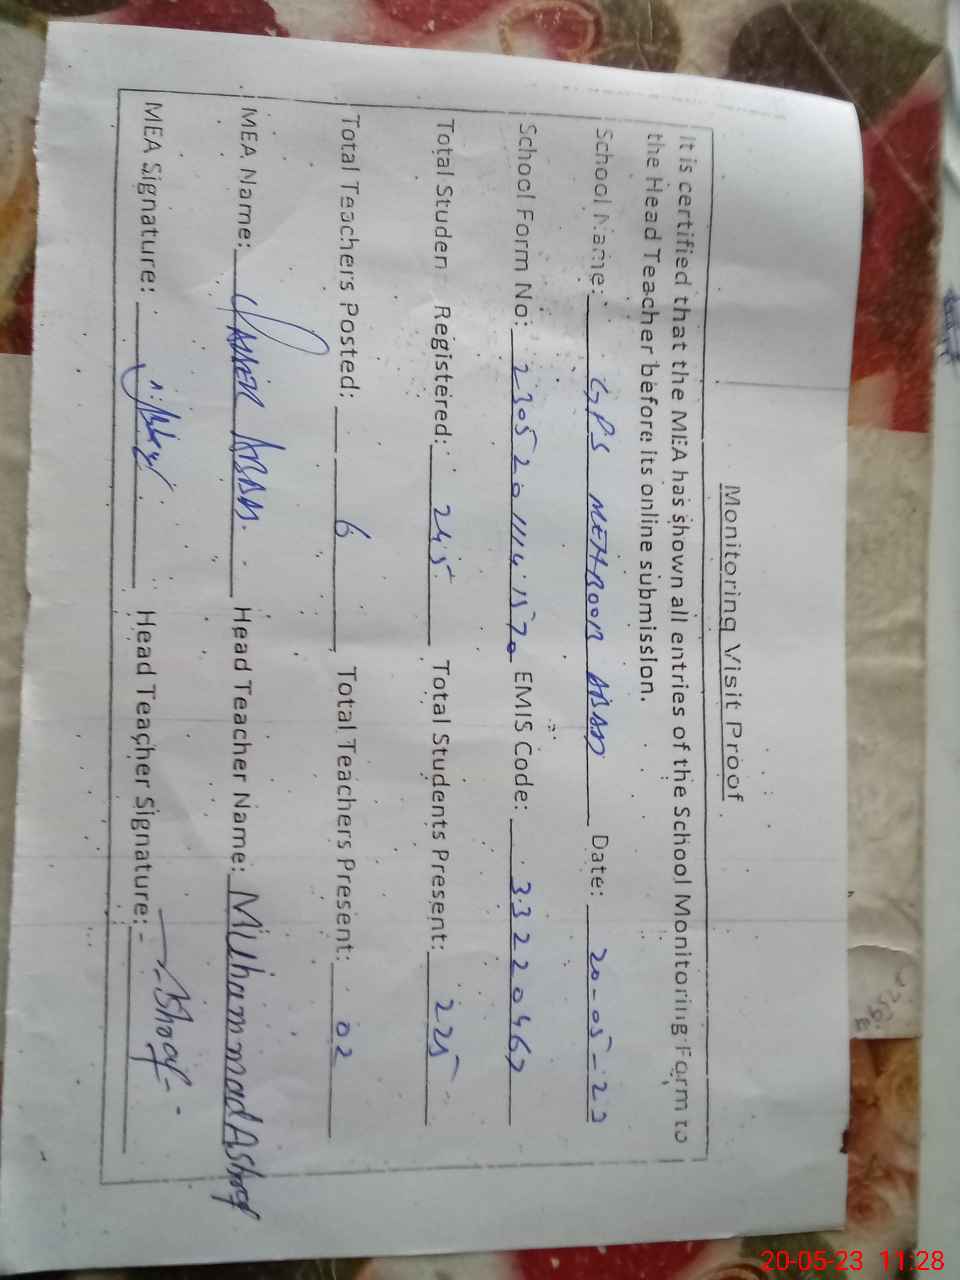 Monitoring Visit Proof
It is certified that the MEA has shown all entries of the School Monitoring Form to
the Head Teacher before its online submission.
School Name: GPS MEHBOOB ABAD Date: 20-05-23
School Form No: 23052011141570 EMIS Code: 33220467
Total Studen Registered: 245 Total Students Present: 225
Total Teachers Posted: 6 Total Teachers Present: 02
MEA Name: YASSER ABAS. Head Teacher Name: Muhammad Ashraf
MEA Signature: Head Teacher Signature: Ashraf
20-05-23 11:28